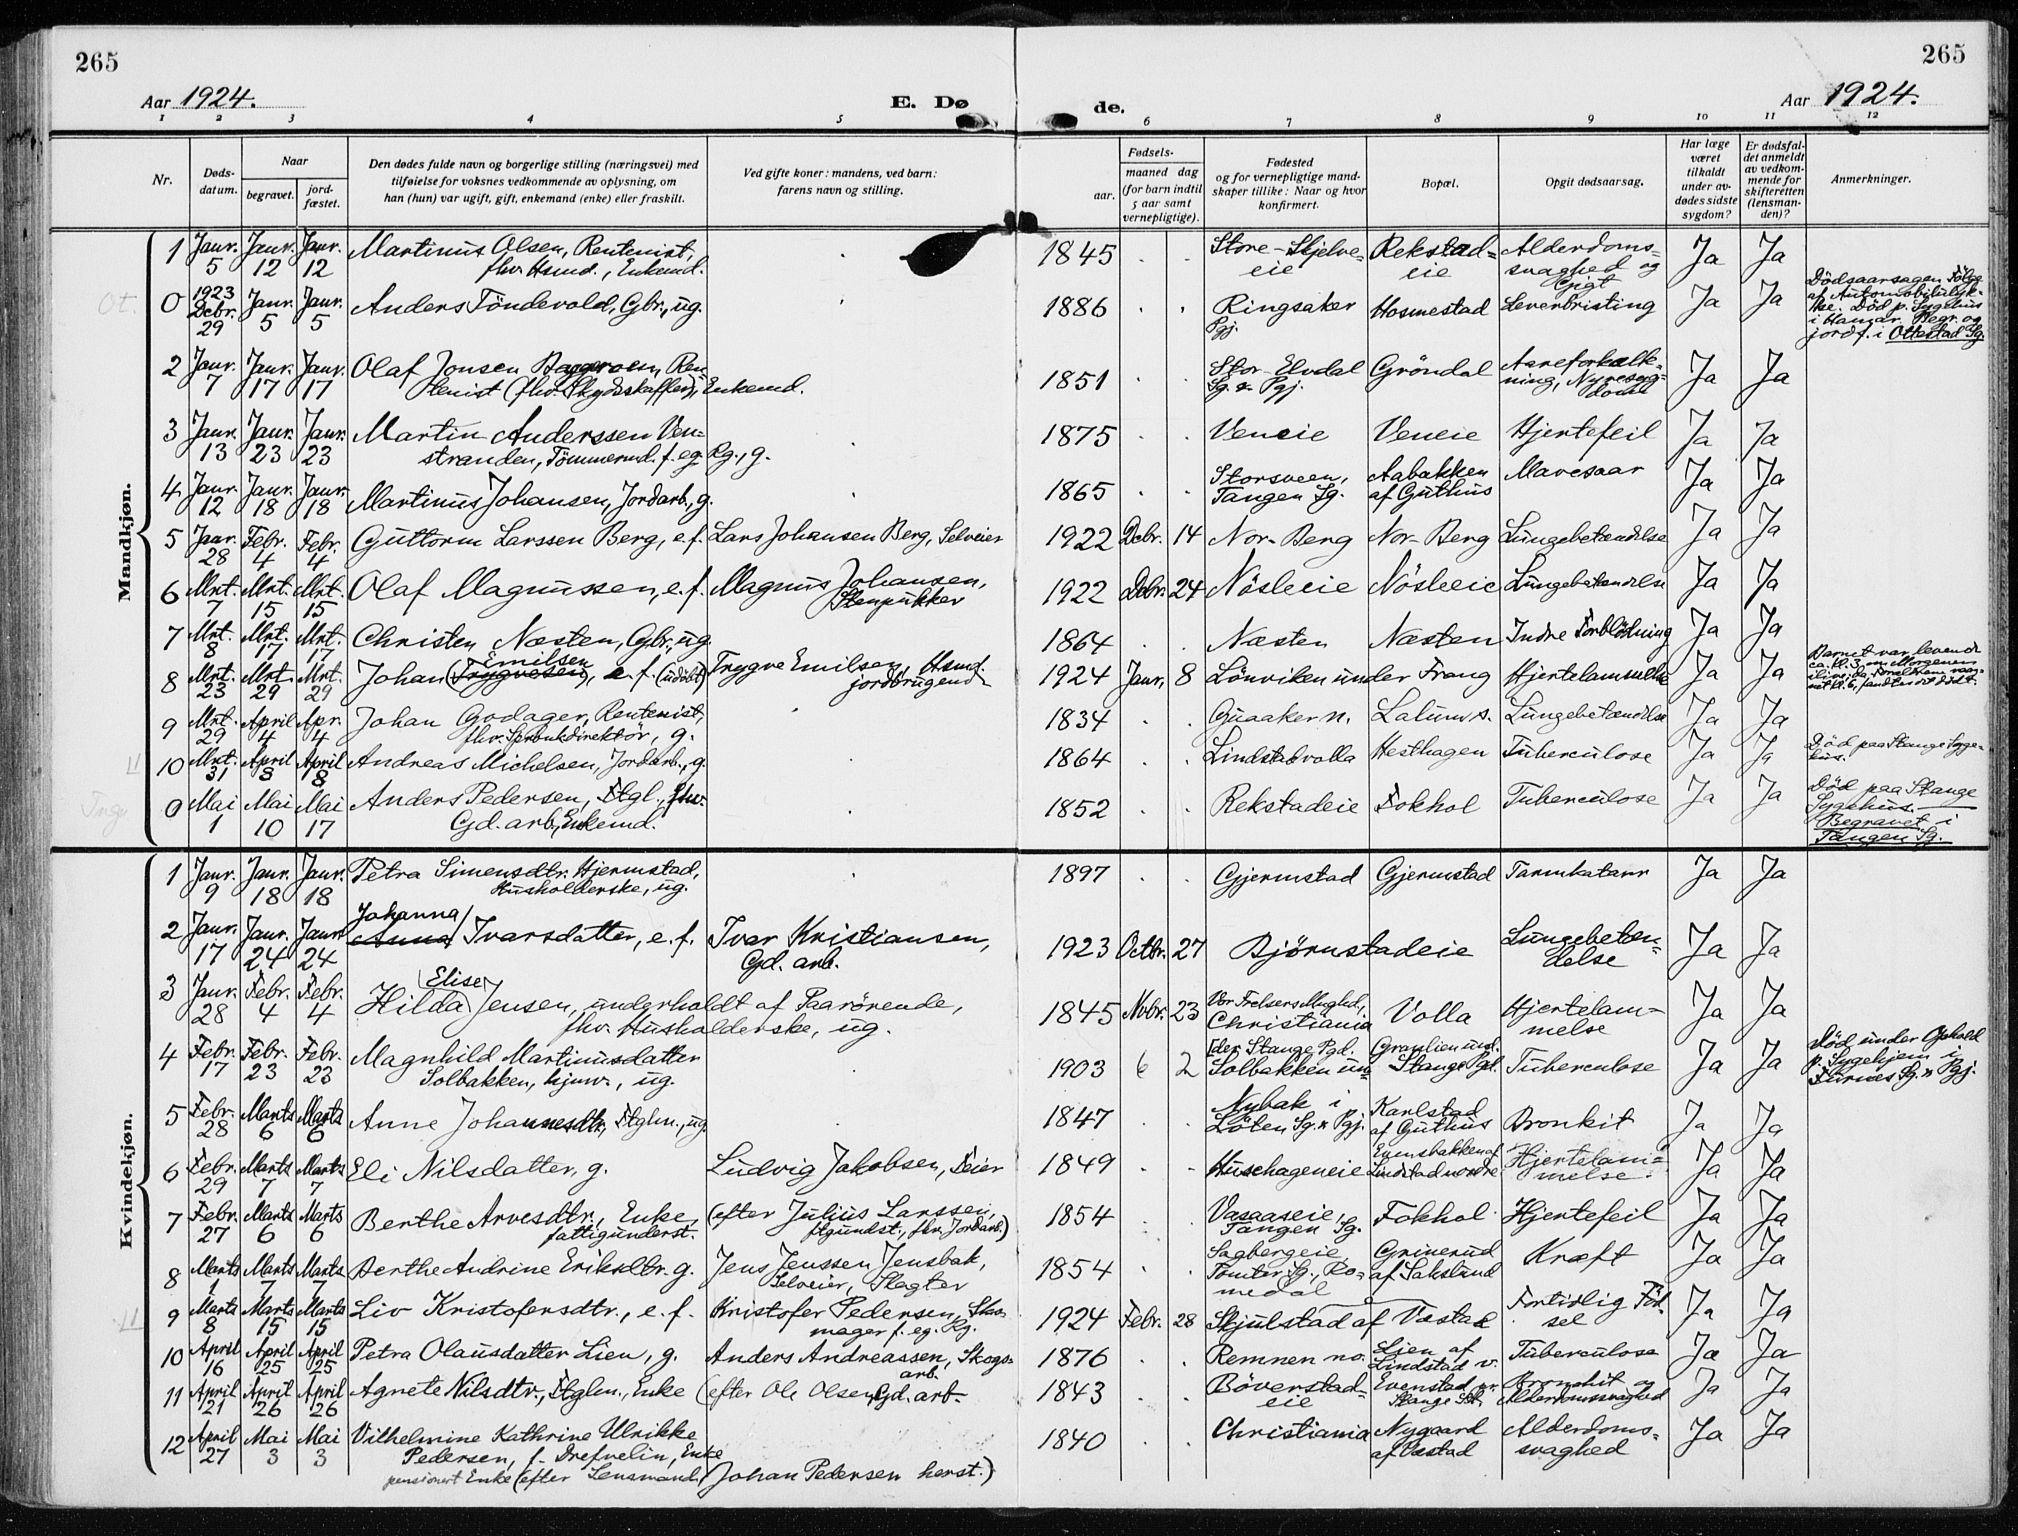 265
265
Aar 1924.
E. Dø
de.
Aar 1924.
1 2 3 4 5 6 7 8 9 10 11 12
Nr.
Døds-
datum.
Naar
begravet.
jord-
fæstet.
Den dødes fulde navn og borgerlige stilling (næringsvei) med
tilføielse for voksnes vedkommende av oplysning, om
han (hun) var ugift, gift, enkemand (enke) eller fraskilt.
Ved gifte koner: mandens, ved barn:
farens navn og stilling.
Fødsels-
aar.
maaned dag
(for barn indtil
5 aar samt
vernepligtige).
Fødested
og for vernepligtige mand-
skaper tillike: Naar og hvor
konfirmert.
Bopæl.
Opgit dødsaarsag.
Har læge
været
tilkaldt
under av-
dødes sidste
sygdom?
Er dødsfal-
det anmeldt
av vedkom-
mende for
skifteretten
(lensman-
den)?
Anmerkninger.
Mandkjøn.
1 Janr. 5 Janr. 12 Janr. 12 Martinus Olsen, Rentenist, fhv. Hsmd., Enkemd. 1845 Store-Skjelve-eie Rekstad-eie Alderdoms-svaghed og Gigt Ja Ja
Ot. 0 1923 Debr. 29 Janr. 5 Janr. 5 Anders Töndevold, Gbr., ug. 1886 Ringsaker Pgj. Hosmestad Leverbristing Ja Ja Dödsaarsagen Fölge af Automobilulyk-ke. Död p. Sygehus i Hamar. Begr. og jordf. i Ottestad Sg.
2 Janr. 7 Janr. 17 Janr. 17 Olaf Jonsen, Ren-tenist (fhv. Skydsskaffer), Enkemd. 1851 Stor-Elvdal Sg. & Pgj. Gröndal Aareforkalk-ning, Nyresyg-dom Ja Ja
3 Janr. 13 Janr. 23 Janr. 23 Martin Anderssen Ven-stranden, Tömmermd. f. eg. Rg., g. 1875 Veneie Veneie Hjertefeil Ja Ja
4 Janr. 12 Janr. 18 Janr. 18 Martinus Johansen, Jordarb., g. 1865 Storsveen, Tangen Sg. Aabakken af Guthus Mavesaar Ja Ja
5 Janr. 28 Febr. 4 Febr. 4 Guttorm Larssen Berg, e. f. Lars Johansen Berg, Selveier 1922 Debr. 14 Nor-Berg Nor-Berg Lungebetændelse Ja Ja
6 Mrt. 7 Mrt. 15 Mrt. 15 Olaf Magnussen, e. f. Magnus Johansen, Stenpukker 1922 Debr. 24 Nösleeie Nösleeie Lungebetændelse Ja Ja
7 Mrt. 8 Mrt. 17 Mrt. 17 Christen Næsten, Gbr., ug. 1864 Næsten Næsten Indre Forblödning Ja Ja
8 Mrt. 23 Mrt. 29 Mrt. 29 Johan (Trygvesen) Emilsen, e. f. (udöbt) Trygve Emilsen, Hsmd. jordbrugende 1924 Janr. 8 Lönviken under Frang Hjertelammelse Ja Ja Barnet var levende ca. kl. 3 om Morgenen
9 Mrt. 29 April 4 Apr. 4 Johan Godager, Rentenist, fhv. Sprbnkdirektör, g. 1834 Guaaker n. Lalum s. Lungebetændelse Ja Ja
10 Mrt. 31 April 8 April 8 Andreas Michelsen, Jordarb., g. 1864 Lindstadvolla Hesthagen Tuberculose Ja Ja Död paa Stange Syge-hus.
0 Mai 1 Mai 10 Mai 17 Anders Pedersen, Ftgl., fhv. Gd. arb., Enkemd. 1852 Rekstadeie Fokhol Tuberculose Ja Ja Död paa Stange Sygehus. Begravet i Tangen Sg.
Kvindekjøn.
1 Janr. 9 Janr. 18 Janr. 18 Petra Simensdtr. Hjermstad, Husholderske, ug. 1897 Gjermstad Gjermstad Tarmkatarr Ja Ja
2 Janr. 17 Janr. 24 Janr. 24 Johanna Anna Ivarsdatter, e. f. Ivar Kristiansen, Gd. arb. 1923 Octbr. 27 Björnstadeie Lungebetæn-delse Ja Ja
3 Janr. 28 Febr. 4 Febr. 4 Hilda Elise Jensen, underholdt af Paarörende, fhv. Husholderske, ug. 1845 Nvbr. 23 Vor Frelsers Mnghd., Christiania Volla Hjertelam-melse Ja Ja
4 Febr. 17 Febr. 23 Febr. 23 Magnhild Martinusdatter Solbakken, hjmv., ug. 1903 6 2 Solbakken un-der Stange Pgd. Granlien und. Stange Pgd. Tuberculose Ja Ja Död under Ophold p. Sygehjem i Furnes Sg. & Pgj.
5 Febr. 28 Marts 6 Marts 6 Anne Johannesdtr., Ftglm., ug. 1847 Nybak i Löten Sg. & Pgj. Karlstad af Guthus Bronkit Ja Ja
6 Febr. 29 Marts 7 Marts 7 Eli Nilsdatter, g. Ludvig Jakobsen, Feier 1849 Husehageneie Evensbakken af Lindstad nordre Hjertelam-melse. Ja Ja
7 Febr. 27 Marts 6 Marts 6 Berthe Arvesdtr., Enke, fattigunderst. (efter Julius Larssen, ftgundst., fhv. Jordarb.) 1854 Vasaaseie, Tangen Sg. Fokhol Hjertefeil Ja Ja
8 Marts 1 Marts 7 Marts 7 Berthe Andrine Eriksdtr. g. Jens Jenssen Jensbak, Selveier, Slagter 1854 Sagbergeie, Tomter Sg., Ro-medal Grinerud af Sakslund Kræft Ja Ja
9 Marts 8 Marts 15 Marts 15 Liv Kristofersdtr., e. f. Kristofer Pedersen, Sko-mager f. eg. Rg. 1924 Febr. 28 Skjulstad af Vastad Fortidlig Föd-sel Ja Ja
10 April 16 April 25 April 25 Petra Olausdatter Lien, g. Anders Andreassen, Skogs-arb. 1876 Remnen no. Lien af Lindstad v. Tuberculose Ja Ja
11 April 21 April 26 April 26 Agnete Nilsdtr., Ftglm., Enke (efter Ole Olsen, Gd. arb. 1843 Böverstad-eie Evenstad pr. Stange St. Bronchit og Alderdomssvaghed Ja Ja
12 April 27 Mai 3 Mai 3 Vilhelmine Kathrine Ulrikke Pedersen, f. Drefvelin, Enke pensionert Enke (efter Lensmand Johan Pedersen herst.) 1840 Christiania Nygaard af Vastad Alderdoms-svaghed Ja Ja